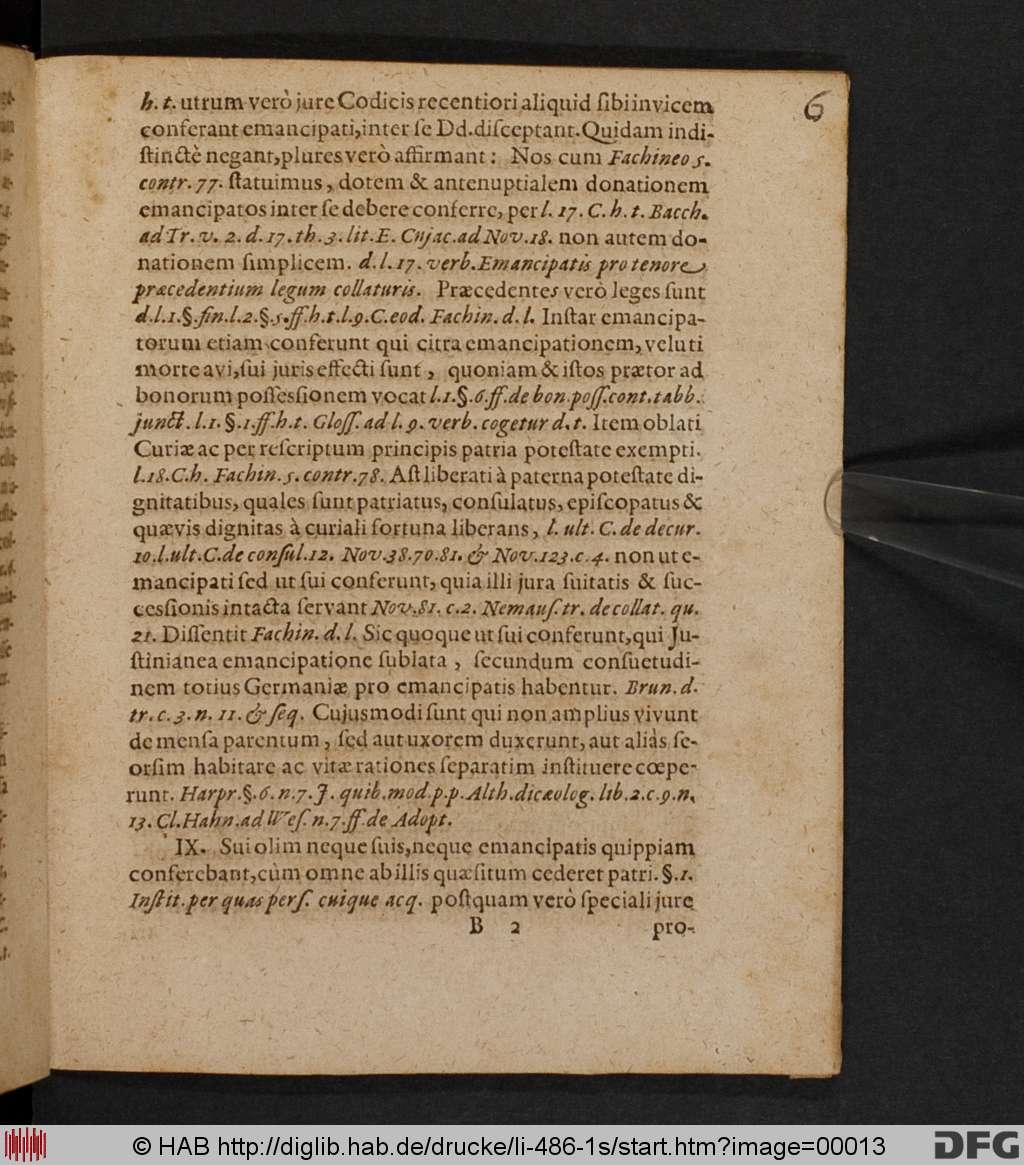 6
h. t. utrum verò jure Codicis recentiori aliquid sibi invicem
conferant emancipati, inter se Dd. disceptant. Quidam indi-
stinctè negant, plures verò affirmant: Nos cum Fachineo 5.
contr. 77. statuimus, dotem & antenuptialem donationem
emancipatos inter se debere conferre, per l. 17. C. h. t. Bacch.
ad Tr. v. 2. d. 17. th. 3. lit. E. Cujac. ad Nov. 18. non autem do-
nationem simplicem. d. l. 17. verb. Emancipatis pro tenore
præcedentium legum collaturis. Præcedentes verò leges sunt
d. l. 1. §. fin. l. 2. §. 5. ff. h. t. l. 9. C. eod. Fachin. d. l. Instar emancipa-
torum etiam conferunt qui citra emancipationem, veluti
morte avi, sui juris effecti sunt, quoniam & istos prætor ad
bonorum possessionem vocat l. 1. §. 6. ff. de bon. poss. cont. tabb.
junct. l. 1. §. 1. ff. h. t. Gloss. ad l. 9. verb. cogetur d. t. Item oblati
Curiæ ac per rescriptum principis patria potestate exempti.
l. 18. C. h. Fachin. 5. contr. 78. Ast liberati à paterna potestate di-
gnitatibus, quales sunt patriatus, consulatus, episcopatus &
quævis dignitas à curiali fortuna liberans, l. ult. C. de decur.
10. l. ult. C. de consul. 12. Nov. 38. 70. 81. & Nov. 123. c. 4. non ut e-
mancipati sed ut sui conferunt, quia illi jura suitatis & suc-
cessionis intacta servant Nov. 81. c. 2. Nemaus. tr. de collat. qu.
21. Dissentit Fachin. d. l. Sic quoque ut sui conferunt, qui Ju-
stinianea emancipatione sublata, secundum consuetudi-
nem totius Germaniæ pro emancipatis habentur. Brun. d.
tr. c. 3. n. 11. & seq. Cujusmodi sunt qui non amplius vivunt
de mensa parentum, sed aut uxorem duxerunt, aut aliàs se-
orsim habitare ac vitæ rationes separatim instituere cœpe-
runt. Harpr. §. 6. n. 7. J. quib. mod. p. p. Alth. dicæolog. lib. 2. c. 9. n.
13. Cl. Hahn. ad Wes. n. 7. ff. de Adopt.
IX. Sui olim neque suis, neque emancipatis quippiam
conferebant, cùm omne ab illis quæsitum cederet patri. §. 1.
Instit. per quas pers. cuique acq. postquam verò speciali jure
B 2 pro-
© HAB http://diglib.hab.de/drucke/li-486-1s/start.htm?image=00013
DFG